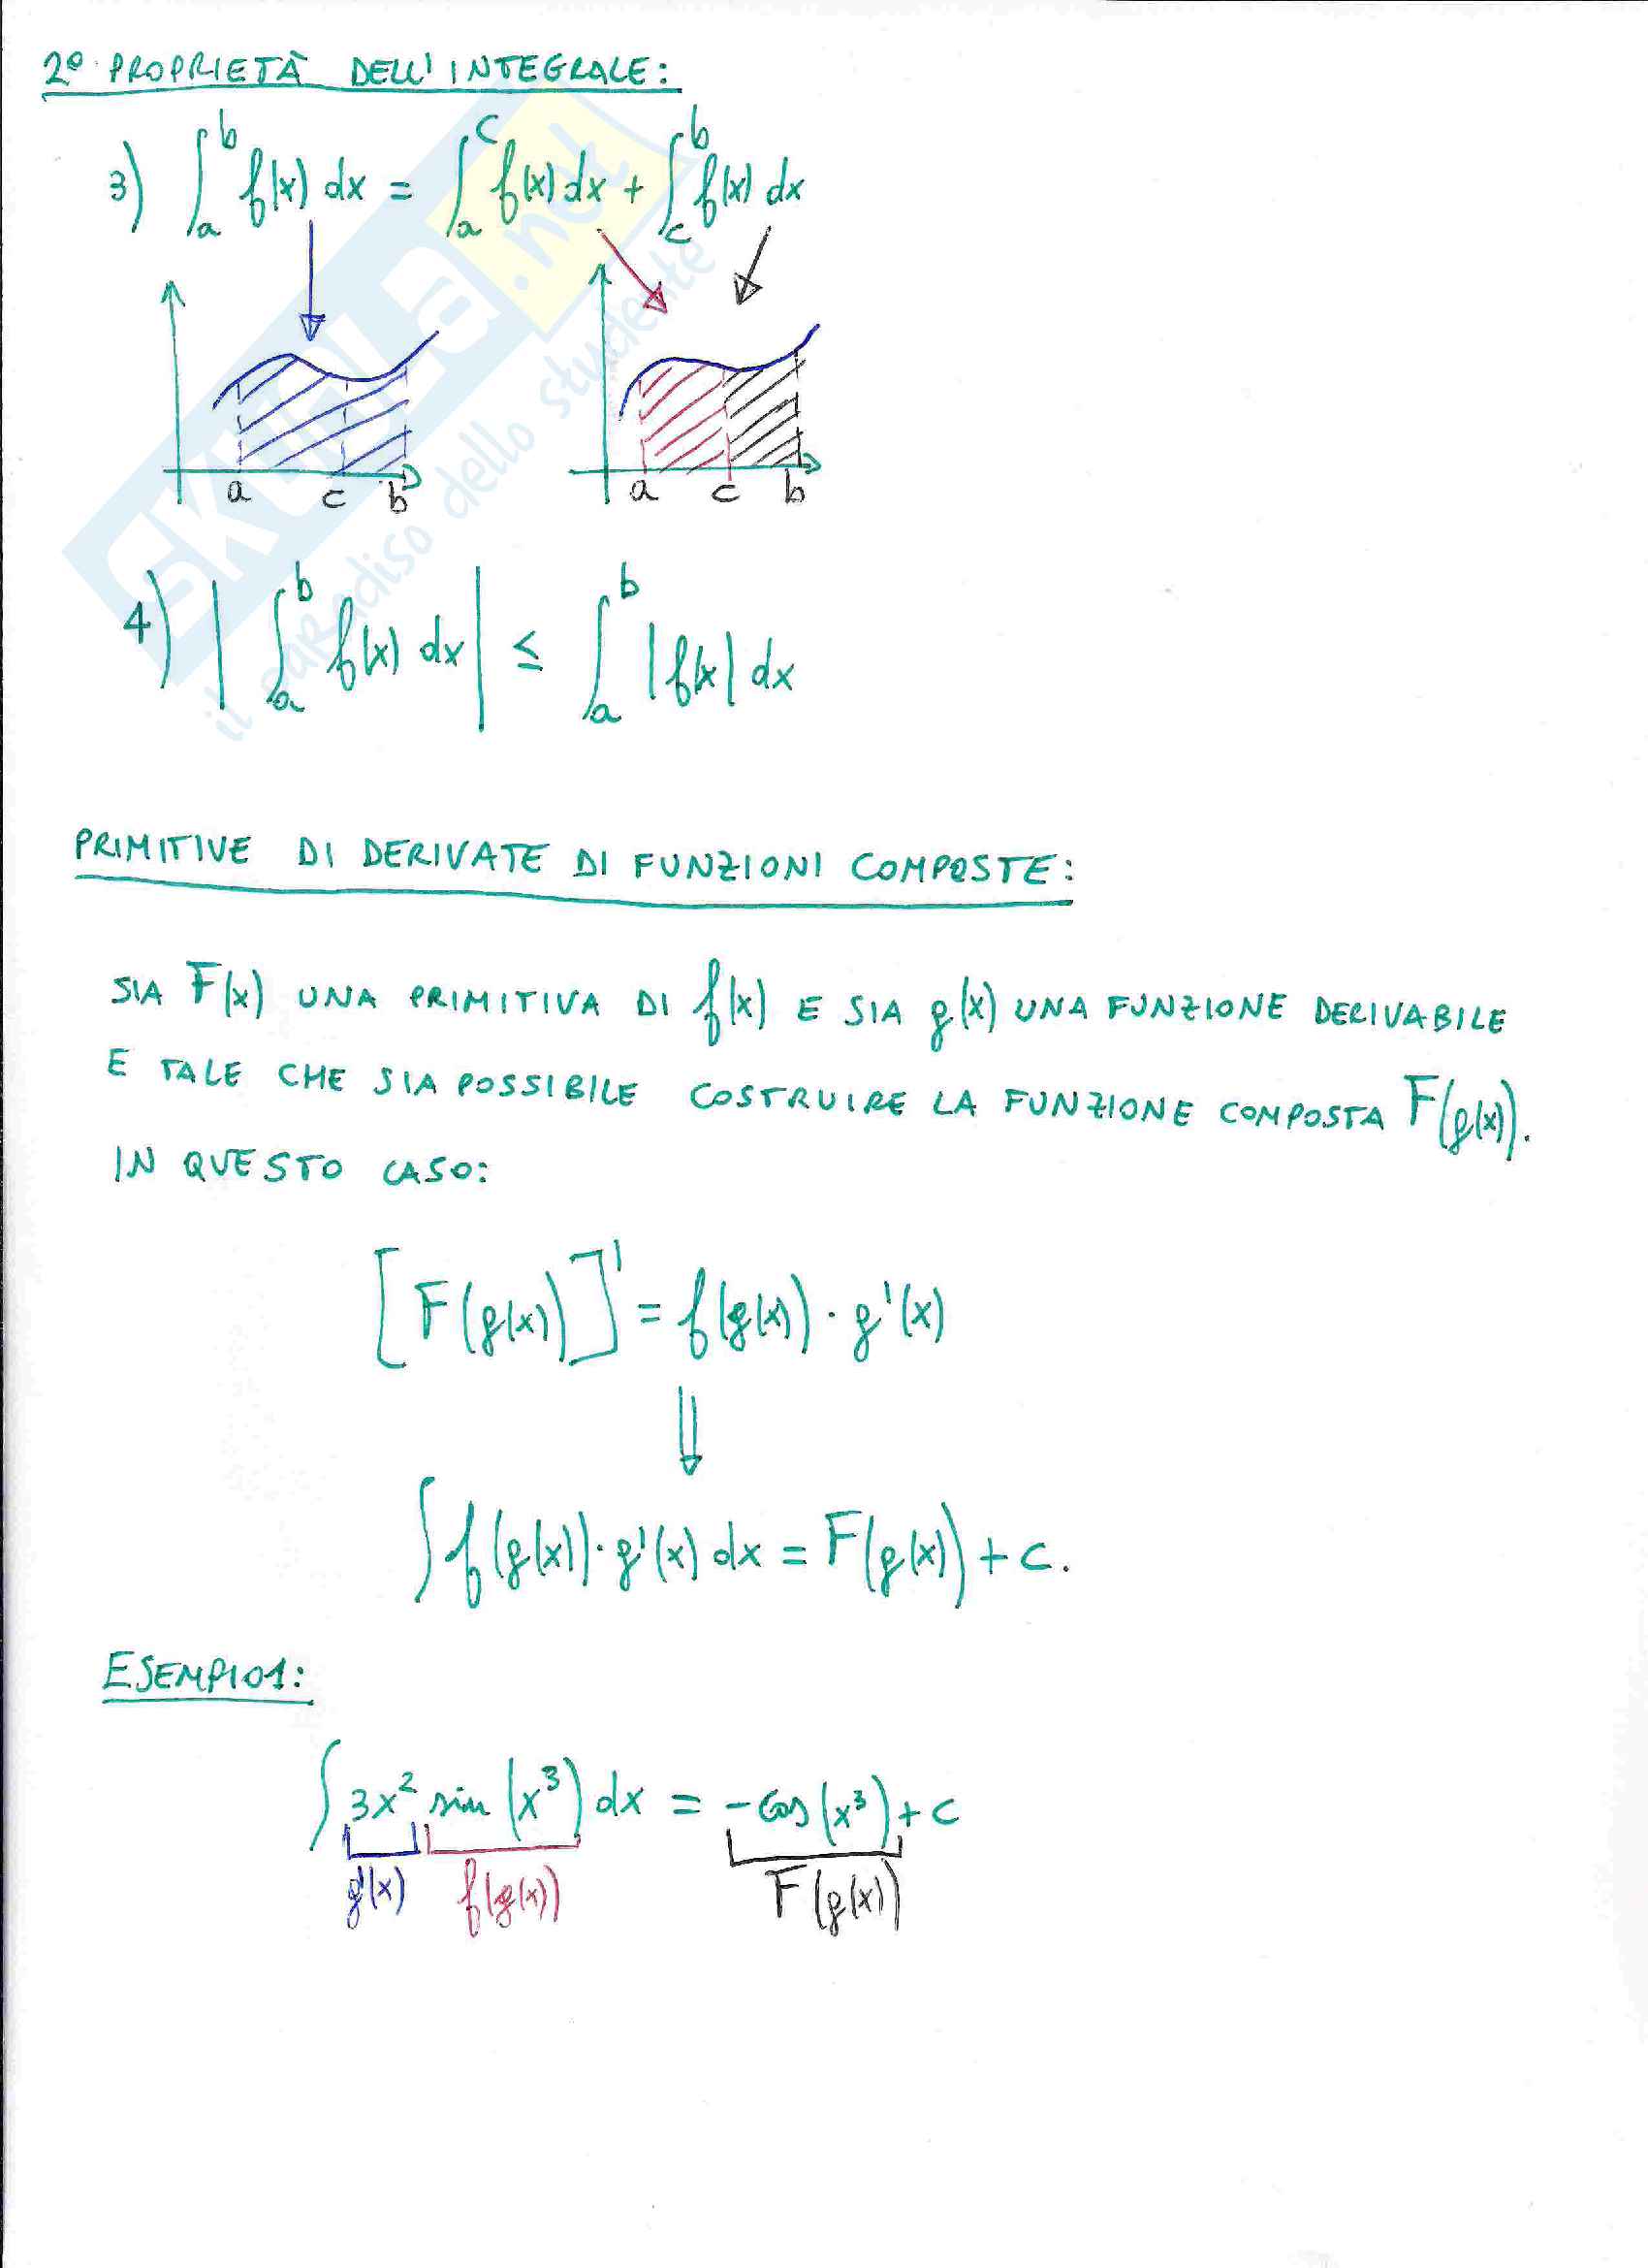 2° PROPRIETÀ DELL'INTEGRALE:
3) ∫_a^b f(x) dx = ∫_a^c f(x) dx + ∫_c^b f(x) dx
a c b
a c b
4) | ∫_a^b f(x) dx | ≤ ∫_a^b |f(x)| dx
SKUOLA.net
il paradiso dello studente
PRIMITIVE DI DERIVATE DI FUNZIONI COMPOSTE:
SIA F(x) UNA PRIMITIVA DI f(x) E SIA g(x) UNA FUNZIONE DERIVABILE
E TALE CHE SIA POSSIBILE COSTRUIRE LA FUNZIONE COMPOSTA F(g(x)).
IN QUESTO CASO:
[F(g(x))]' = f(g(x)) · g'(x)
⇓
∫ f(g(x)) · g'(x) dx = F(g(x)) + c.
ESEMPIO1:
∫ 3x² sin (x³) dx = -cos (x³) + c
g'(x) f(g(x)) F(g(x))